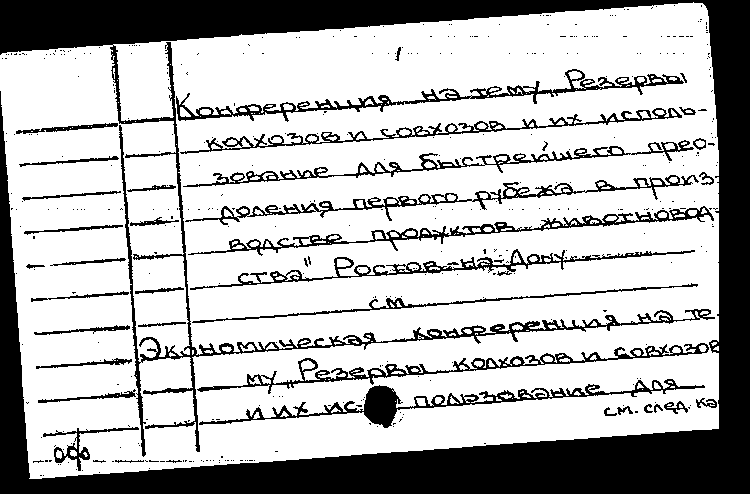 1
Конференция на тему „Резервы
колхозов и совхозов и их исполь-
зование для быстрейшего прео-
доления первого рубежа в произ-
водстве продуктов животновод-
ства" Ростов-на-Дону
см.
Экономическая конференция на те-
му „Резервы колхозов и совхозов
и их ис- пользование для
см. след. ка